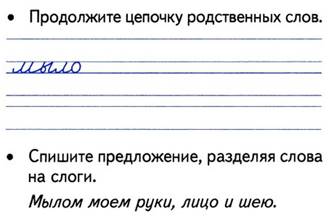 • Продолжите цепочку родственных слов.
мыло
• Спишите предложение, разделяя слова
на слоги.
Мылом моем руки, лицо и шею.